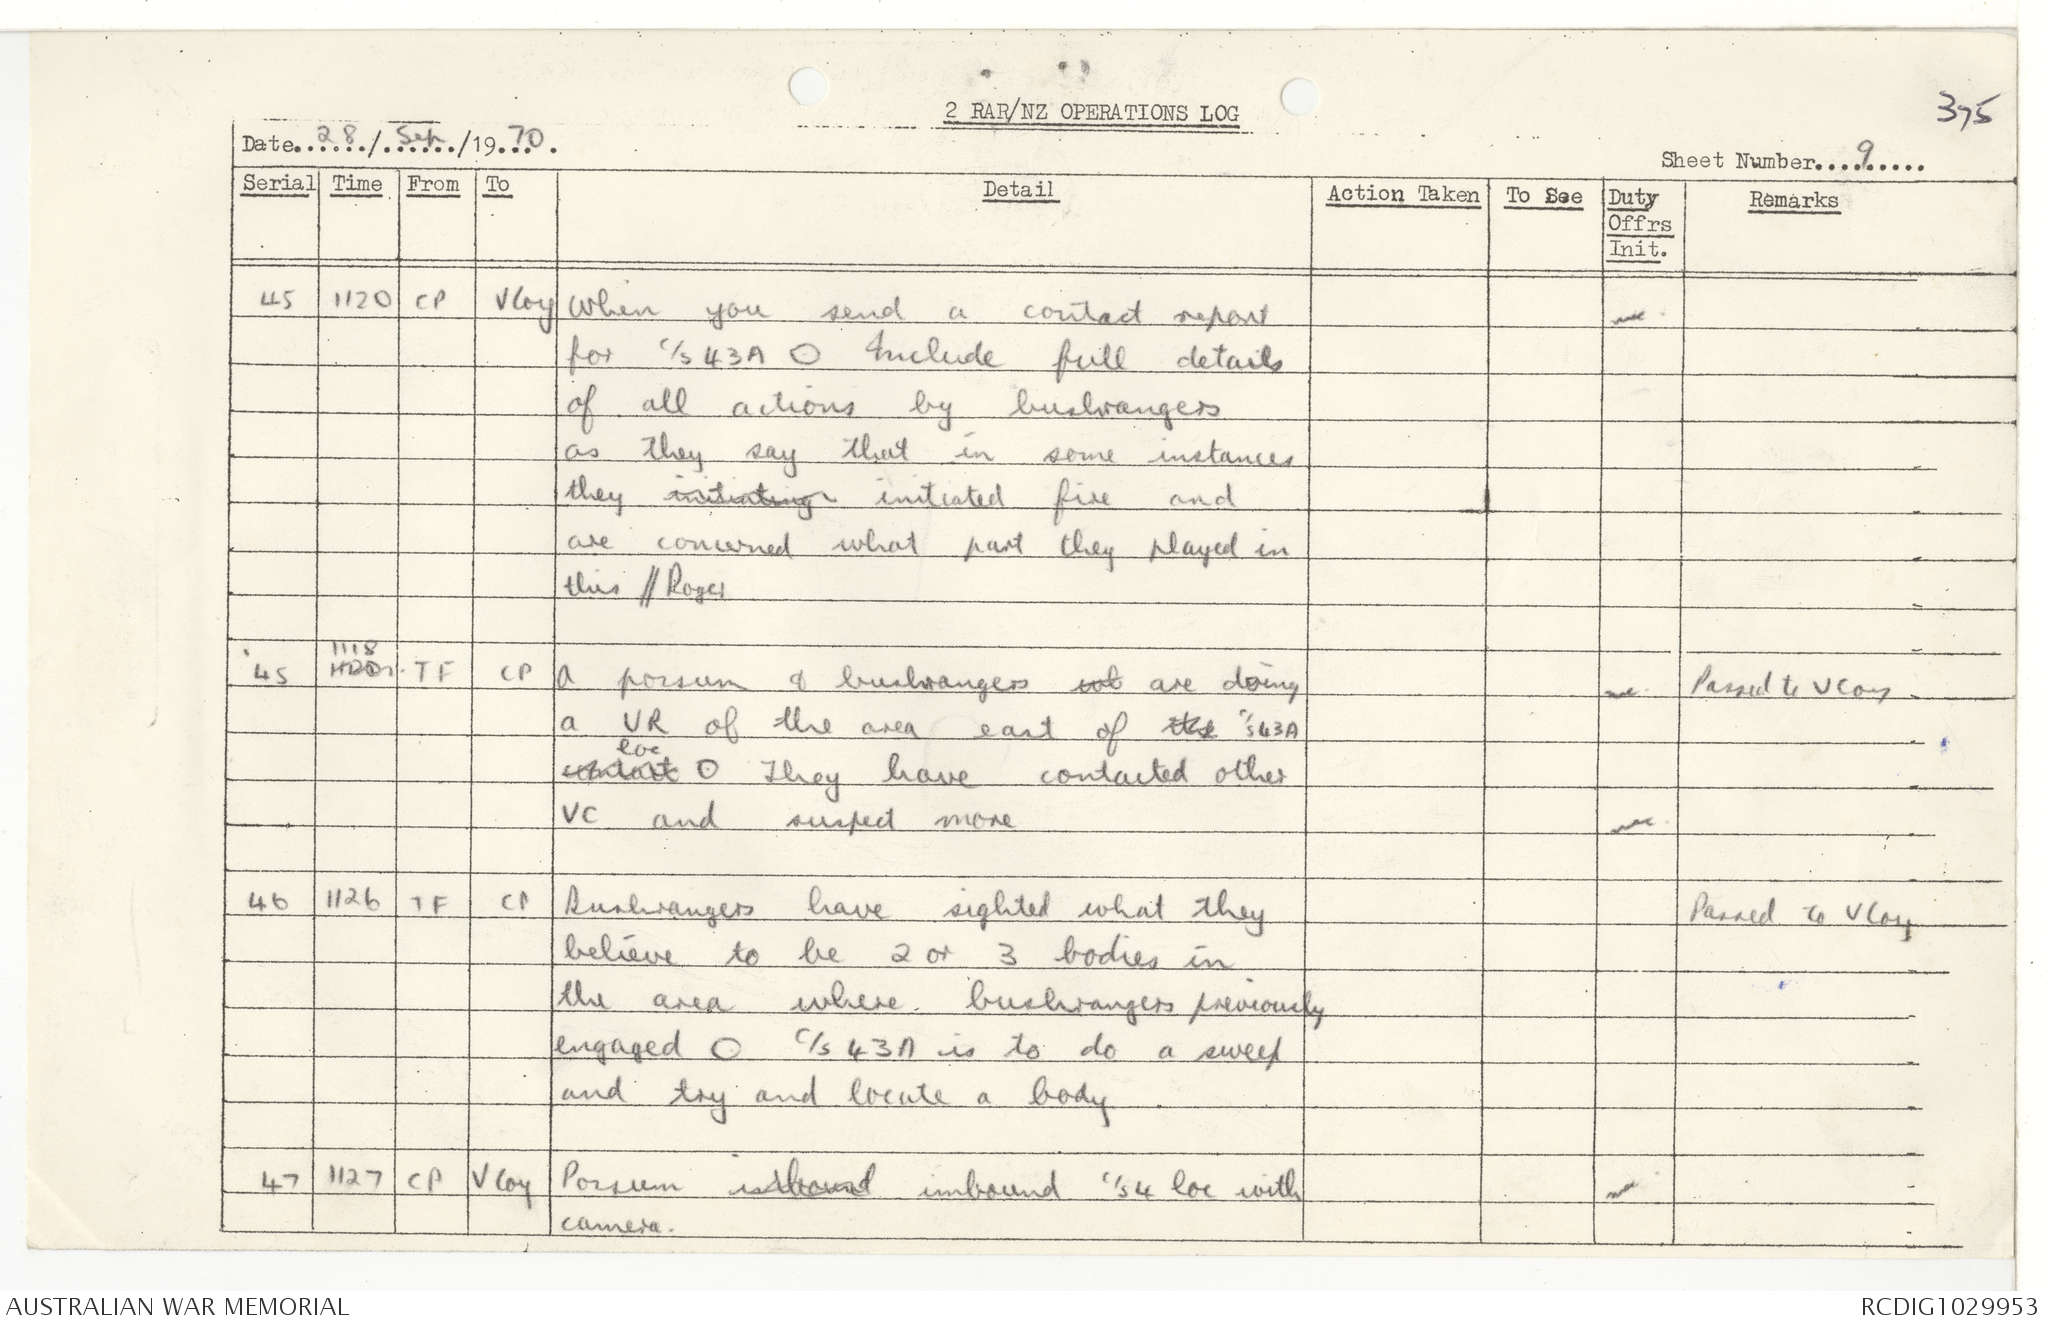 375
2 RAR/NZ OPERATIONS LOG
Date..28./.Sep./19.70.
Sheet Number....9.....
Serial Time From To Detail Action Taken To See Duty Offrs Init. Remarks
45 1120 CP VCoy When you send a contact report
for C/s 43A O Include full details
of all actions by bushrangers
as they say that in some instances
they initiating initiated fire and
are concerned what part they played in
this // Roger
1118
45 TF CP A possum & bushrangers are doing Passed to VCoy
a VR of the area east of the C/s 43A
loc
contact O They have contacted other
VC and suspect more
46 1126 TF CP Bushrangers have sighted what they Passed to VCoy
believe to be 2 or 3 bodies in
the area where bushrangers previously
engaged O C/s 43A is to do a sweep
and try and locate a body
47 1127 CP VCoy Possum inbound C/s 4 loc with
camera.
AUSTRALIAN WAR MEMORIAL
RCDIG1029953